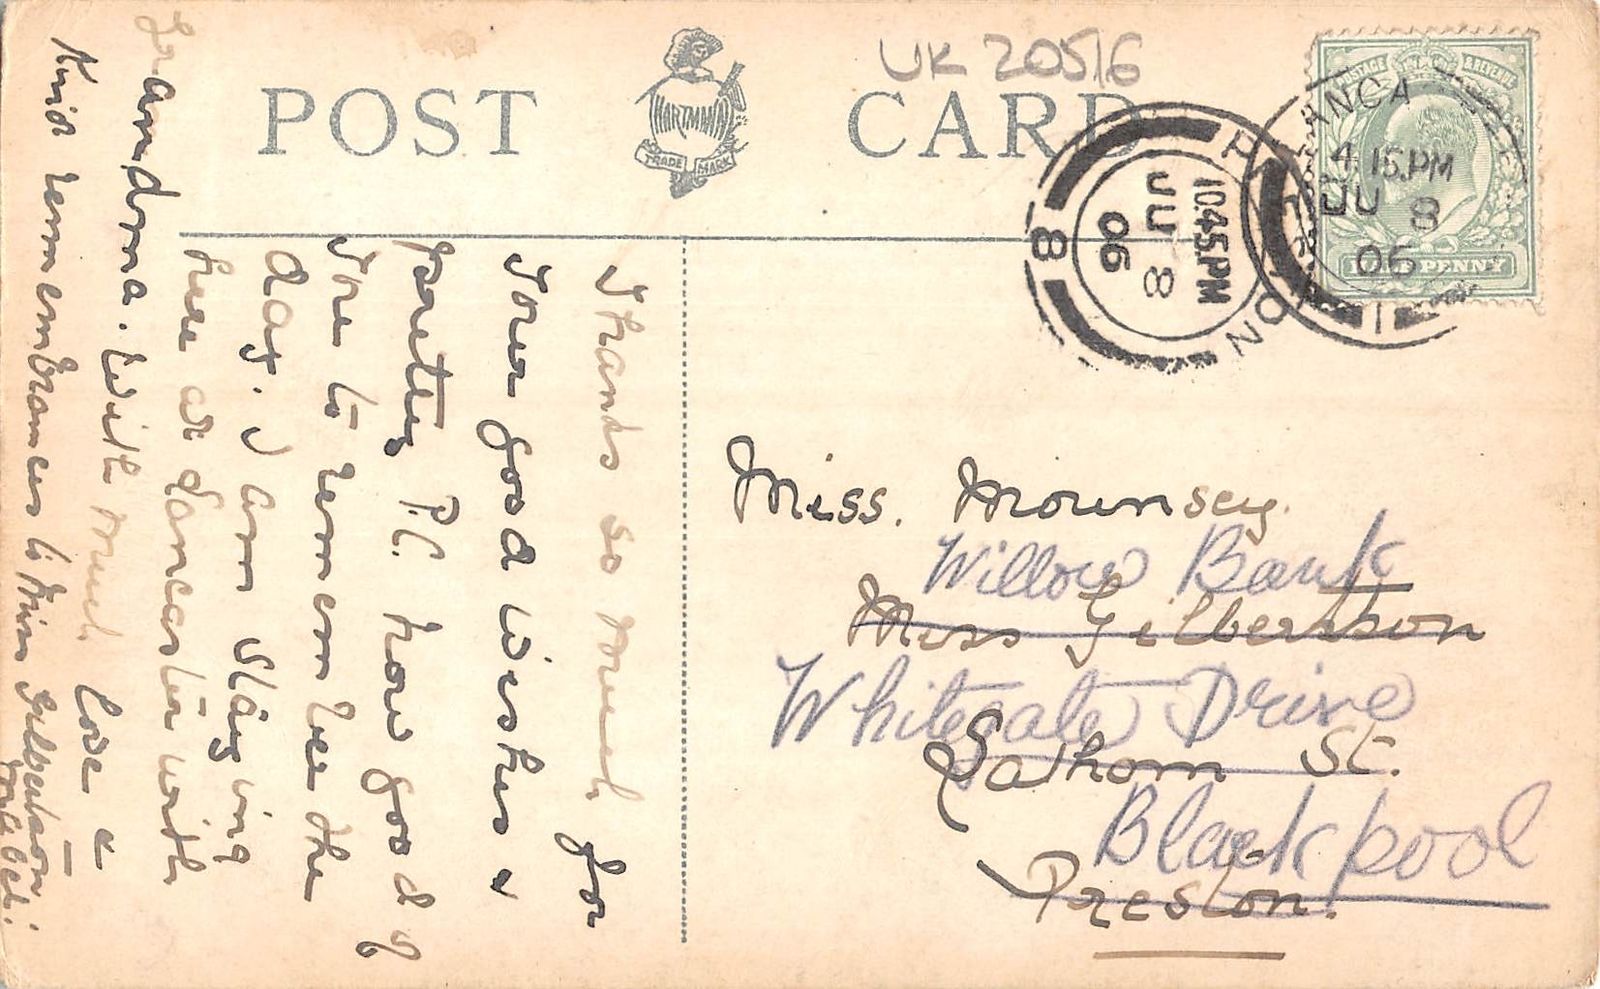 UK 20516
POST CARD
HARTMANN
TRADE MARK
POSTAGE & REVENUE
HALFPENNY
LANCA
4.15.PM
JU 8
06
PRESTON
10.45.PM
JU 8
06
8
Thanks so much for
your good wishes &
pretty P.C. how good of
you to remember the
day. I am staying
here at Lancaster with
Grandma. With much love &
Kind remembrances to Miss Gilbertson.
Mabel.
Miss. Mounsey.
Willow Bank
Miss Gilbertson
Whitegate Drive
Lathom St.
Blackpool
Preston.